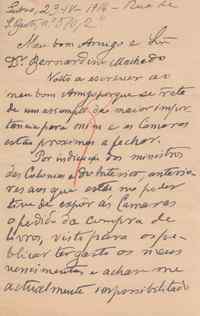 Lisboa, 22-IV-1914 - Rua de
S.
Meu bom Amigo e Sñr
Dr. Bernardino Machado
Volto a escrever ao
meu bom Amigo porque se trata
de um assumpto da maior impor-
tancia para mim e as Camaras
estão proximas a fechar.
Por indicação dos ministros
das Colonias e do Interior, anterio-
res aos que estão no poder
tive de expôr ás Camaras
o pedido da compra de
livros, visto para os pu-
blicar ter gasto os meus
vencimentos e achar-me
actualmente